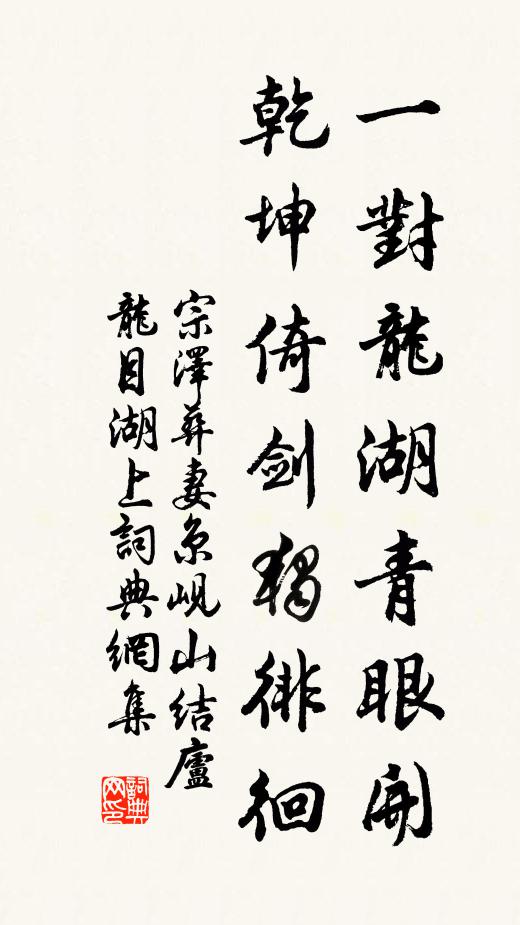 一對龍湖青眼開
乾坤倚劍獨徘徊
宗澤葬妻京峴山結廬
龍目湖上詞典網集
詞典網印